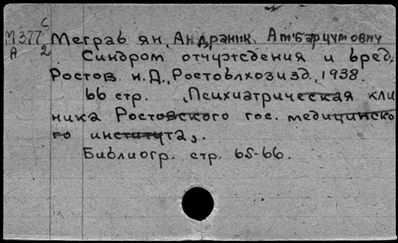 С
М377 Меграв ян, Андраник Амбарцумович
А 2 Синдром отчуждения и вред.
Ростов н.Д., Ростовлхозизд, 1938.
66 стр. „Психиатрическая кли
ника Ростовского гос. медицинско
го института„.
Библиогр. стр. 65-66.